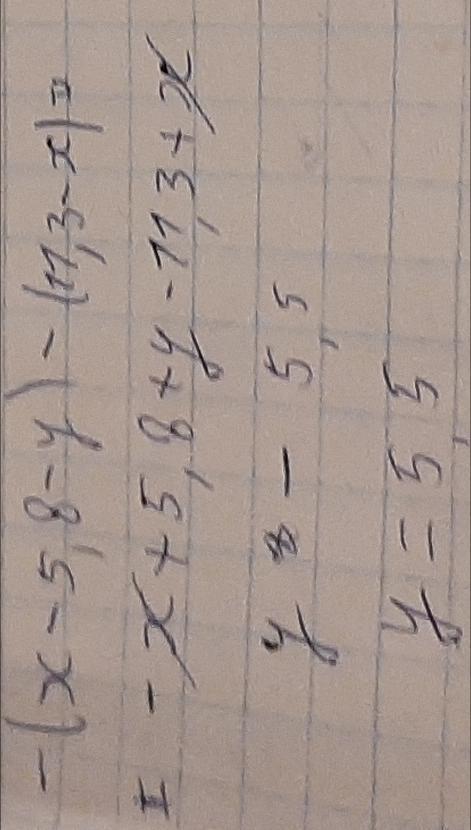 -(x-5,8-y)-(11,3-x)=
= -x+5,8+y-11,3+x
y = - 5,5
y = 5,5